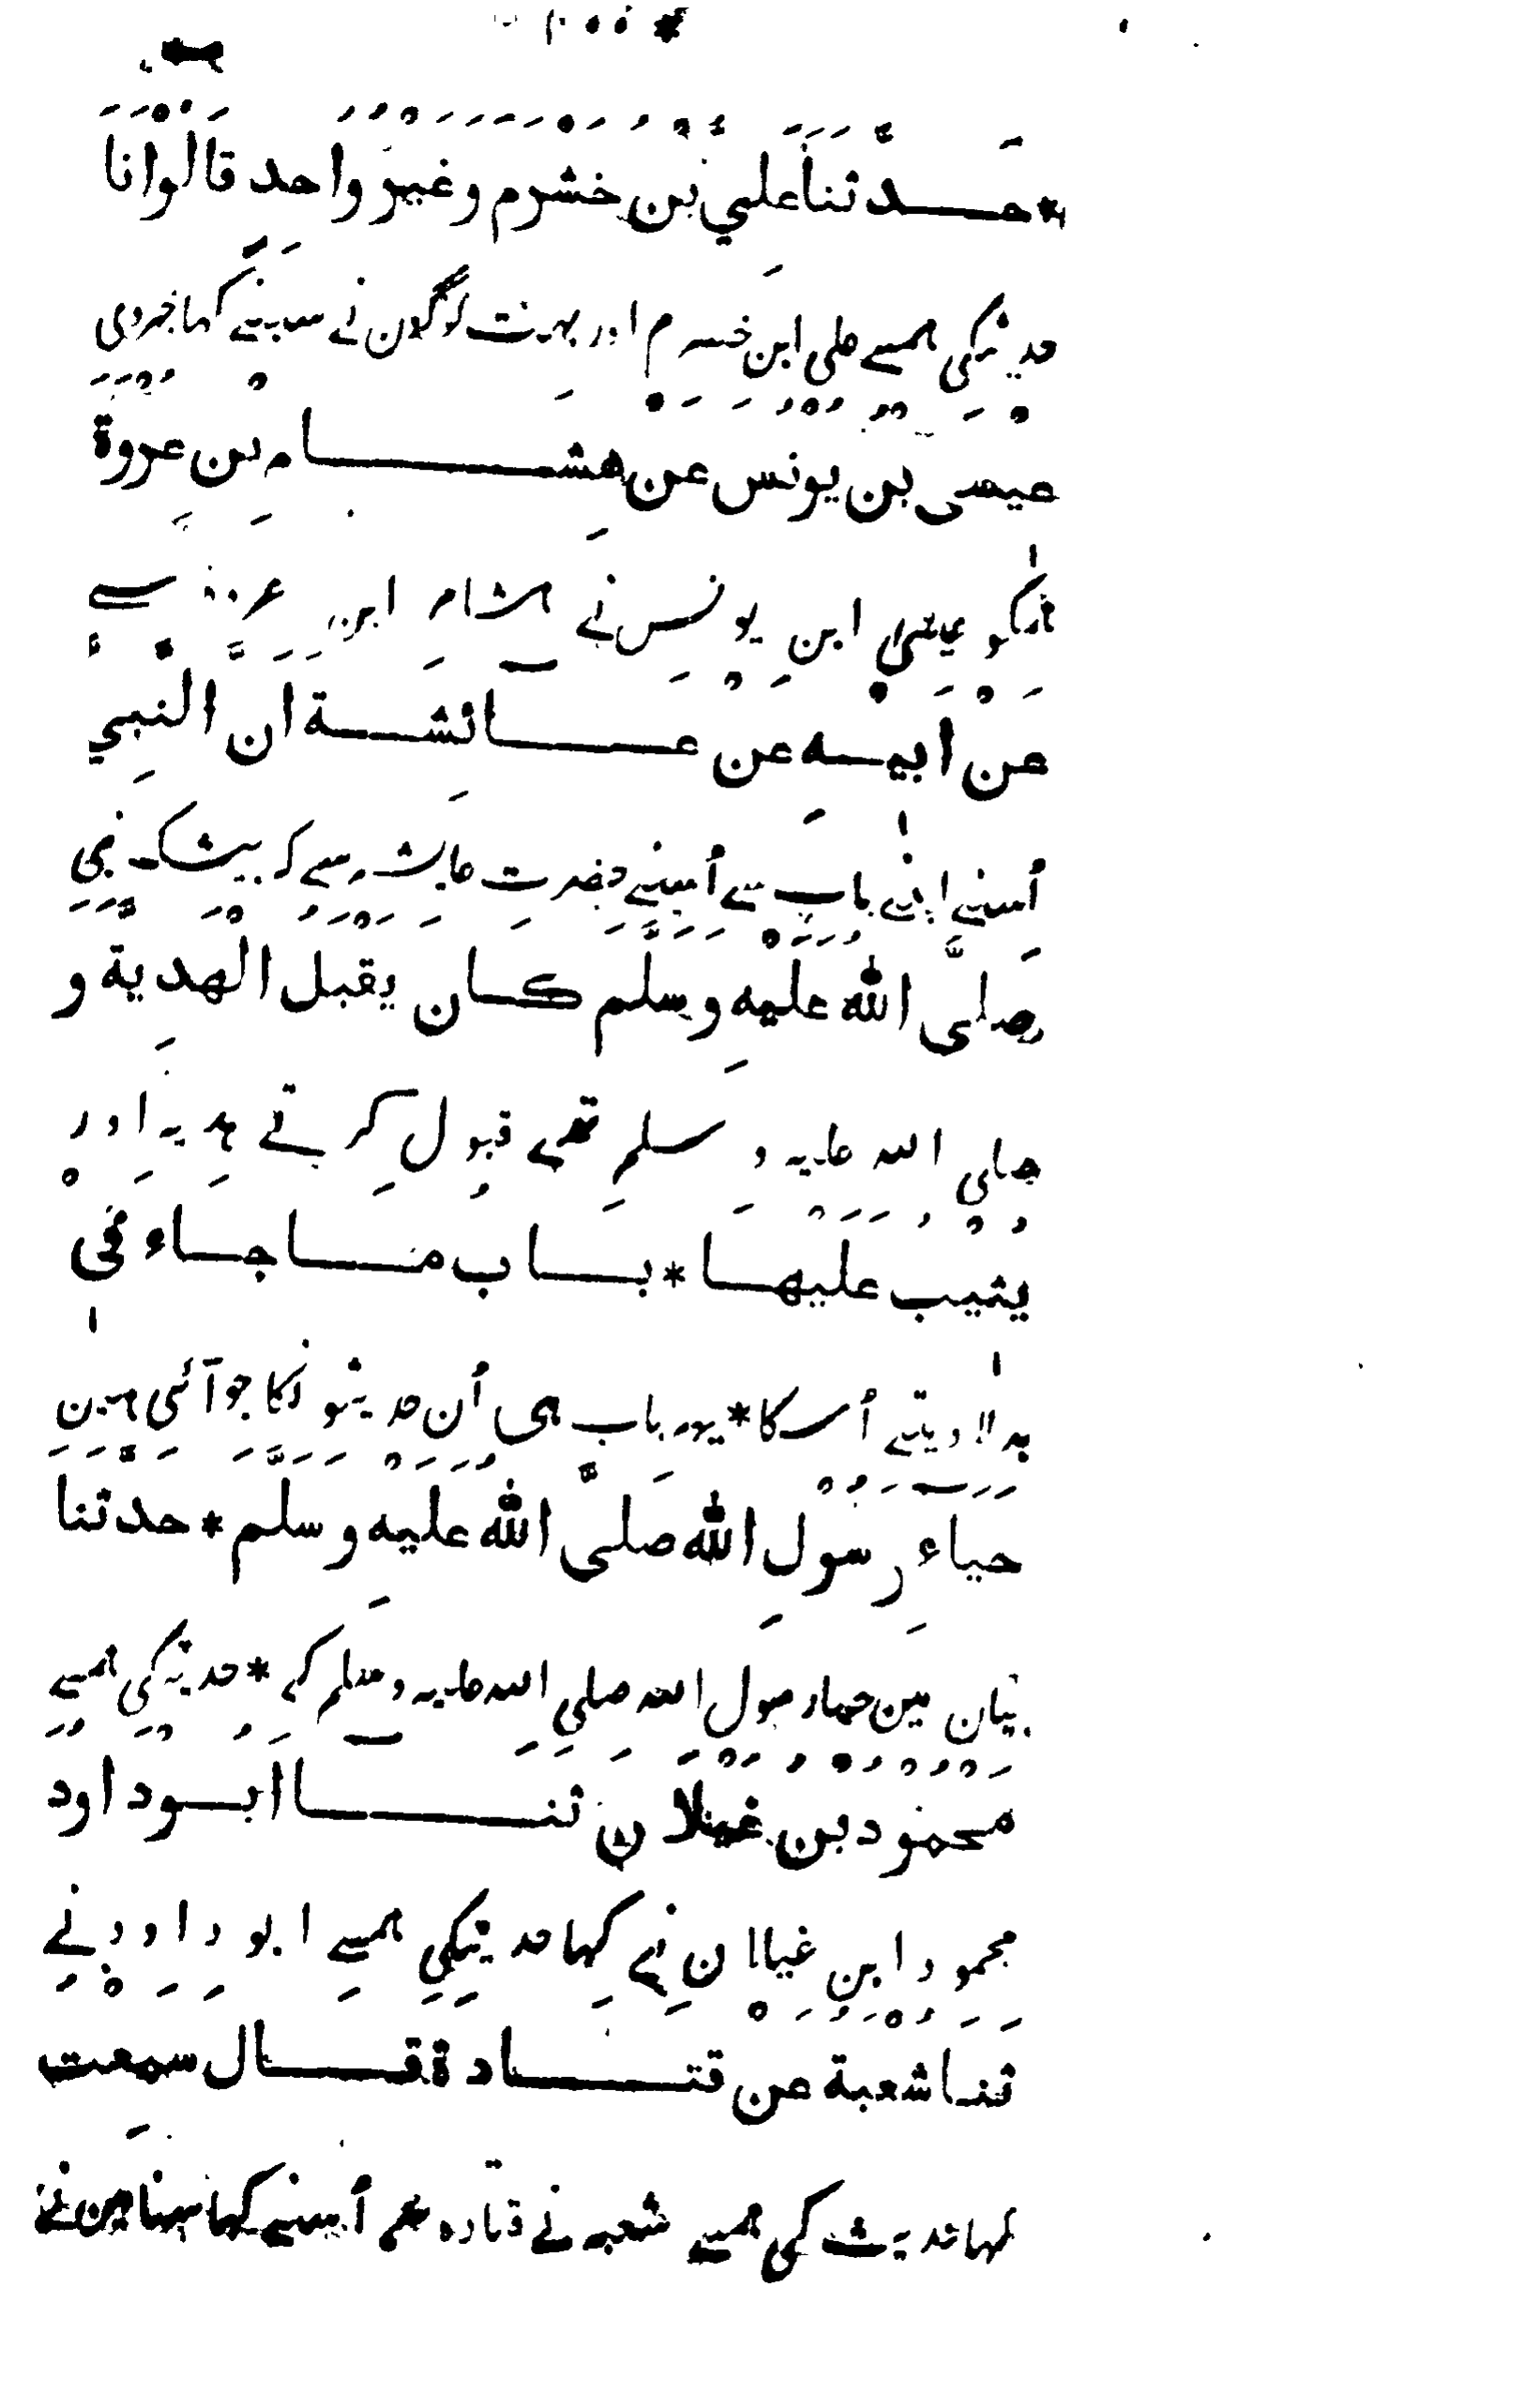 * حَدَّثَنَا عَلِيُّ بْنُ خَشْرَمٍ وَغَيْرُ وَاحِدٍ قَالُوْا نَا
حدیثکی ہمسے علی ابن خشرم اور بہت لوگون نے سبہنے کہا خبردی
عِيْسَى بْنُ يُوْنُسَ عَنْ هِشَامِ بْنِ عُرْوَةَ
ہمکو عیسٰی ابن یونس نے ہشام ابن عروہ سے
عَنْ اَبِيْهِ عَنْ عَآئِشَةَ اَنَّ النَّبِيَّ
اُسنے اپنے باپ سے اُسنے حضرت عایشہ سے کہ بیشک نبی
صَلَّى اللّٰهُ عَلَيْهِ وَسَلَّمَ كَانَ يَقْبَلُ الْهَدِيَّةَ وَ
صلی اللہ علیہ و سلم تھے قبول کرتے ہدیہ اور
يُثِيْبُ عَلَيْهَا * بَابُ مَا جَاءَ فِيْ
بدلا دیتے اُسکا * یہہ باب ہی اُن حدیثونکا جو آئی ہین
حَيَآءِ رَسُوْلِ اللّٰهِ صَلَّى اللّٰهُ عَلَيْهِ وَسَلَّمَ * حَدَّثَنَا
بیان مین حیاء رسول اللہ صلی اللہ علیہ وسلم کے * حدیثکی ہمسے
مَحْمُوْدُ بْنُ غَيْلَانَ ثَنَا اَبُوْ دَاوٗدَ
محمود ابن غیلان نے کہا حدیثکی ہمسے ابو داود نے
ثَنَا شُعْبَةُ عَنْ قَتَادَةَ قَالَ سَمِعْتُ
کہا حدیث کی ہمسے شعبہ نے قتادہ سے اُسنے کہا سنا مین نے